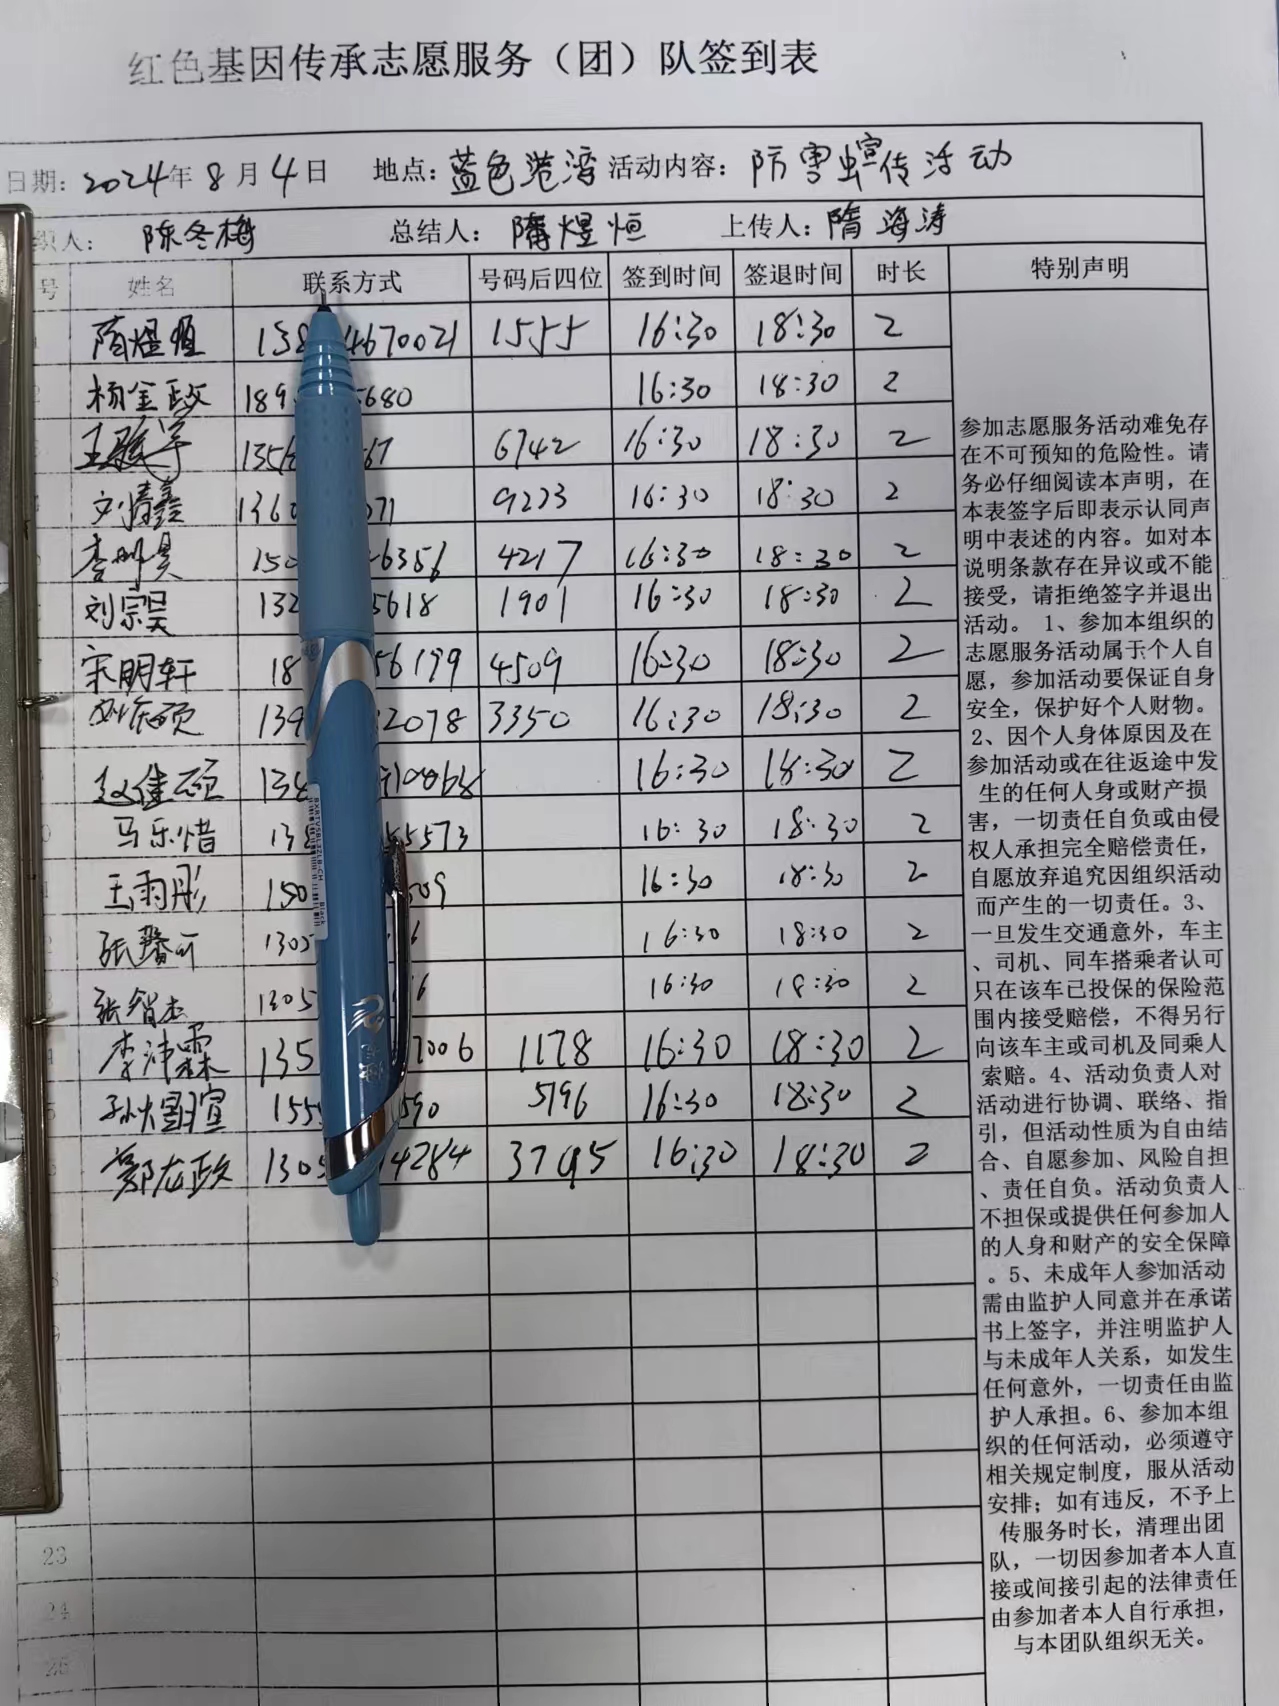 红色基因传承志愿服务（团）队签到表
日期：2024年8月4日 地点：蓝色港湾 活动内容：防害虫宣传活动
织人：陈冬梅 总结人：隋煜恒 上传人：隋海涛
号 姓名 联系方式 号码后四位 签到时间 签退时间 时长 特别声明
隋煜恒 138 4670021 1555 16:30 18:30 2
杨金政 189 5680 16:30 18:30 2
王骏宇 1356 67 6742 16:30 18:30 2
刘清鑫 1360 071 9223 16:30 18:30 2
李明昊 150 6356 4217 16:30 18:30 2
刘宗昊 132 5618 1901 16:30 18:30 2
宋明轩 18 56199 4509 16:30 18:30 2
硕 139 2078 3350 16:30 18:30 2
赵健硕 138 16:30 18:30 2
马乐惜 138 55573 16:30 18:30 2
王雨彤 150 509 16:30 18:30 2
张馨可 1305 6 16:30 18:30 2
张智杰 1305 6 16:30 18:30 2
李沛霖 135 7006 1178 16:30 18:30 2
孙 宣 155 590 5196 16:30 18:30 2
郭龙政 1305 4284 3795 16:30 18:30 2
23
24
25
参加志愿服务活动难免存
在不可预知的危险性。请
务必仔细阅读本声明，在
本表签字后即表示认同声
明中表述的内容。如对本
说明条款存在异议或不能
接受，请拒绝签字并退出
活动。 1、参加本组织的
志愿服务活动属于个人自
愿，参加活动要保证自身
安全，保护好个人财物。
2、因个人身体原因及在
参加活动或在往返途中发
生的任何人身或财产损
害，一切责任自负或由侵
权人承担完全赔偿责任，
自愿放弃追究因组织活动
而产生的一切责任。3、
一旦发生交通意外，车主
、司机、同车搭乘者认可
只在该车已投保的保险范
围内接受赔偿，不得另行
向该车主或司机及同乘人
索赔。4、活动负责人对
活动进行协调、联络、指
引，但活动性质为自由结
合、自愿参加、风险自担
、责任自负。活动负责人
不担保或提供任何参加人
的人身和财产的安全保障
。5、未成年人参加活动
需由监护人同意并在承诺
书上签字，并注明监护人
与未成年人关系，如发生
任何意外，一切责任由监
护人承担。6、参加本组
织的任何活动，必须遵守
相关规定制度，服从活动
安排；如有违反，不予上
传服务时长，清理出团
队，一切因参加者本人直
接或间接引起的法律责任
由参加者本人自行承担，
与本团队组织无关。